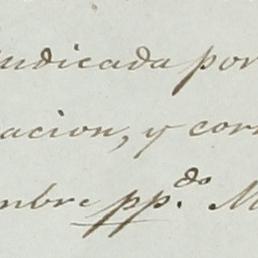 indicada por
acion, y corr
mbre pp.do M